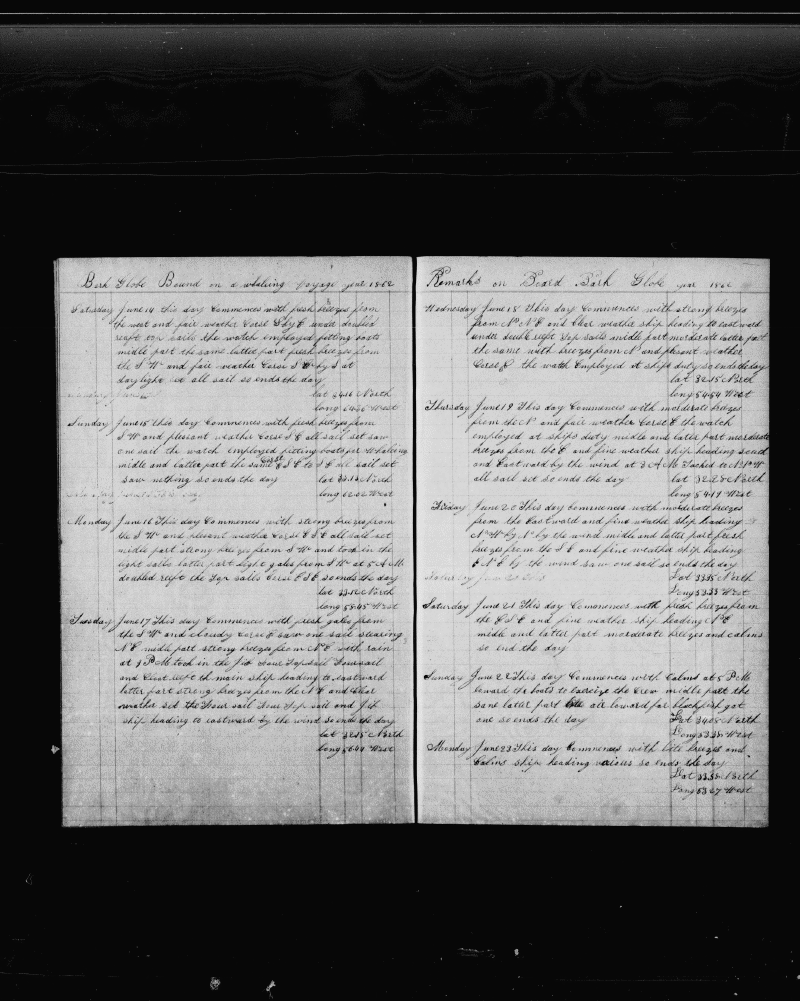 Bark Globe Bound on a whaling Voyage year 1862
Saturday June 14 this day Commences with fresh breezes from
the west and fair weather Corse E by E under doubled
reeft top sails the watch employed fitting boats
midle part the same latter part fresh breezes from
the S W and fair weather Corse S E by S at
daylight set all sail so ends the day
lat 34.16 North
long West
Sunday June 15 this day Commences with fresh breezes from
S W and plesant weather Corse S E all sail set saw
one sail the watch employed fitting boats for Whaleing
midle and latter part the same Corse E S E to S E all sail set
saw nothing so ends the day lat 33.13 North
long 62.52 West
Monday June 16 This day Commences with strong breezes from
the S W and plesent weather Corse E S E all sail set
midle part strong breezes from S W and took in the
light sails latter part light gales from S W at 5 A M
doubled reeft the Top sails Corse E S E so ends the day
lat 33.12 North
long 58.45 West
Tuesday June 17 This day Commences with fresh gales from
the S W and cloudy Corse E saw one sail stearing
N E midle part strong breezes from N E with rain
at 1 P M took in the Jib Four Topsail Foursail
and Close reeft the main ship heading to eastward
latter part strong breezes from the N E and Clear
weather set the Four sail Four Top sail and Jib
ship heading to eastward by the wind so ends the day
lat 32.15 North
long 56.44 West
Remarks on Board Bark Globe year 1862
Wednesday June 18 This day Commences with strong breezes
from N N E and Clear weather ship heading to eastward
under double reeft Top sails midle part moderate latter part
the same with breezes from N and plesent weather
Corse E the watch Employed at ships duty so ends the day
lat 32.15 North
long 54.54 West
Thursday June 19 This day Commences with morderate breezes
from the N and fair weather Corse E the watch
employed at ships duty midle and latter part morderate
breezes from the E and fine weather ship heading South
and Eastward by the wind at 3 A M Tacked to N N W
all sail set so ends the day lat 32.28 North
long 54.19 West
Friday June 20 This day Commences with morderate breezes
from the Eastward and fine weather ship heading
N W by N by the wind midle and latter part fresh
breezes from the S E and fine weather ship heading
E N E by the wind saw one sail so ends the day
Lat 33.15 North
Long 53.53 West
Saturday June 21 This day Commences with fresh breezes from
the E S E and fine weather ship heading N E
midle and latter part morderate breezes and calms
so end the day
Sunday June 22 This day Commences with Calms at 5 P M
lowerd the boats to Exercise the Crew middle part the
same latter part all lowerd for blackfish got
one so ends the day Lat 34.08 North
Long 53.38 West
Monday June 23 This day Commences with lite breezes and
Calms ship heading various so ends the day
Lat 33.58 North
Long 53.27 West